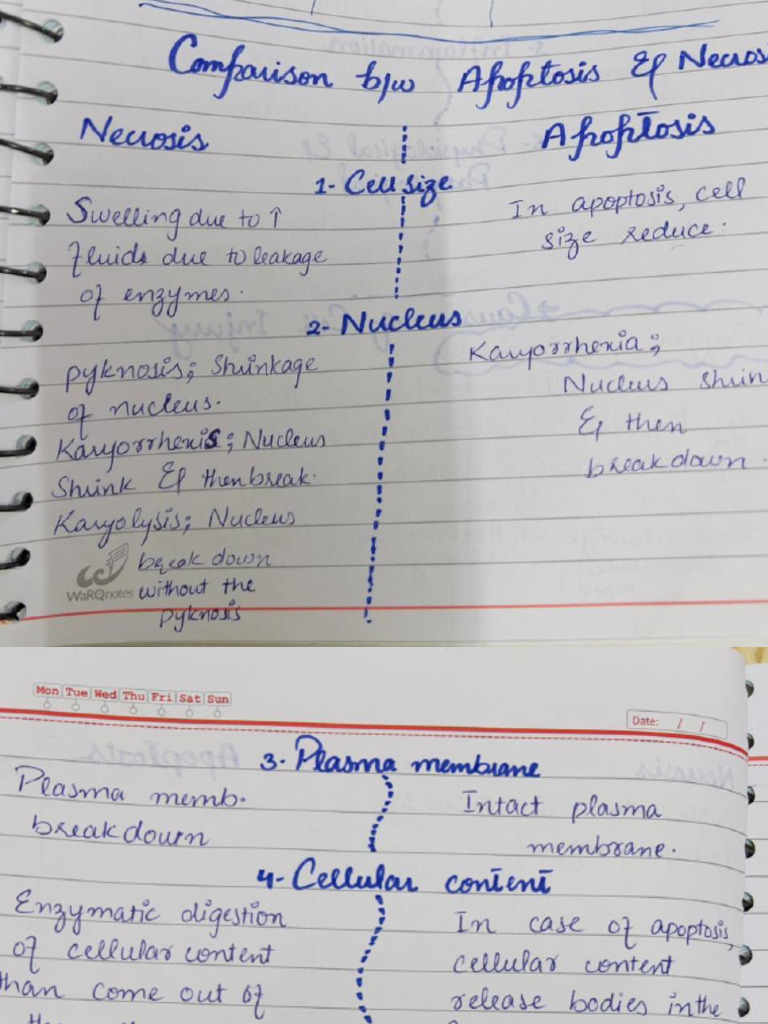 Comparison b/w Apoptosis & Necrosi
Necrosis
Apoptosis
1- Cell size
Swelling due to ↑
fluids due to leakage
of enzymes.
In apoptosis, cell
size reduce.
2- Nucleus
pyknosis; Shrinkage
of nucleus.
Karyorrhexis; Nucleus
Shrink & then break.
Karyolysis; Nucleus
break down
without the
pyknosis
Karyorrhexia;
Nucleus shrin
& then
breakdown.
WaRQnotes
Mon Tue Wed Thu Fri Sat Sun
Date: / /
3- Plasma membrane
Plasma memb.
breakdown
Intact plasma
membrane.
4- Cellular content
Enzymatic digestion
of cellular content
than come out of
In case of apoptosis,
cellular content
release bodies in the